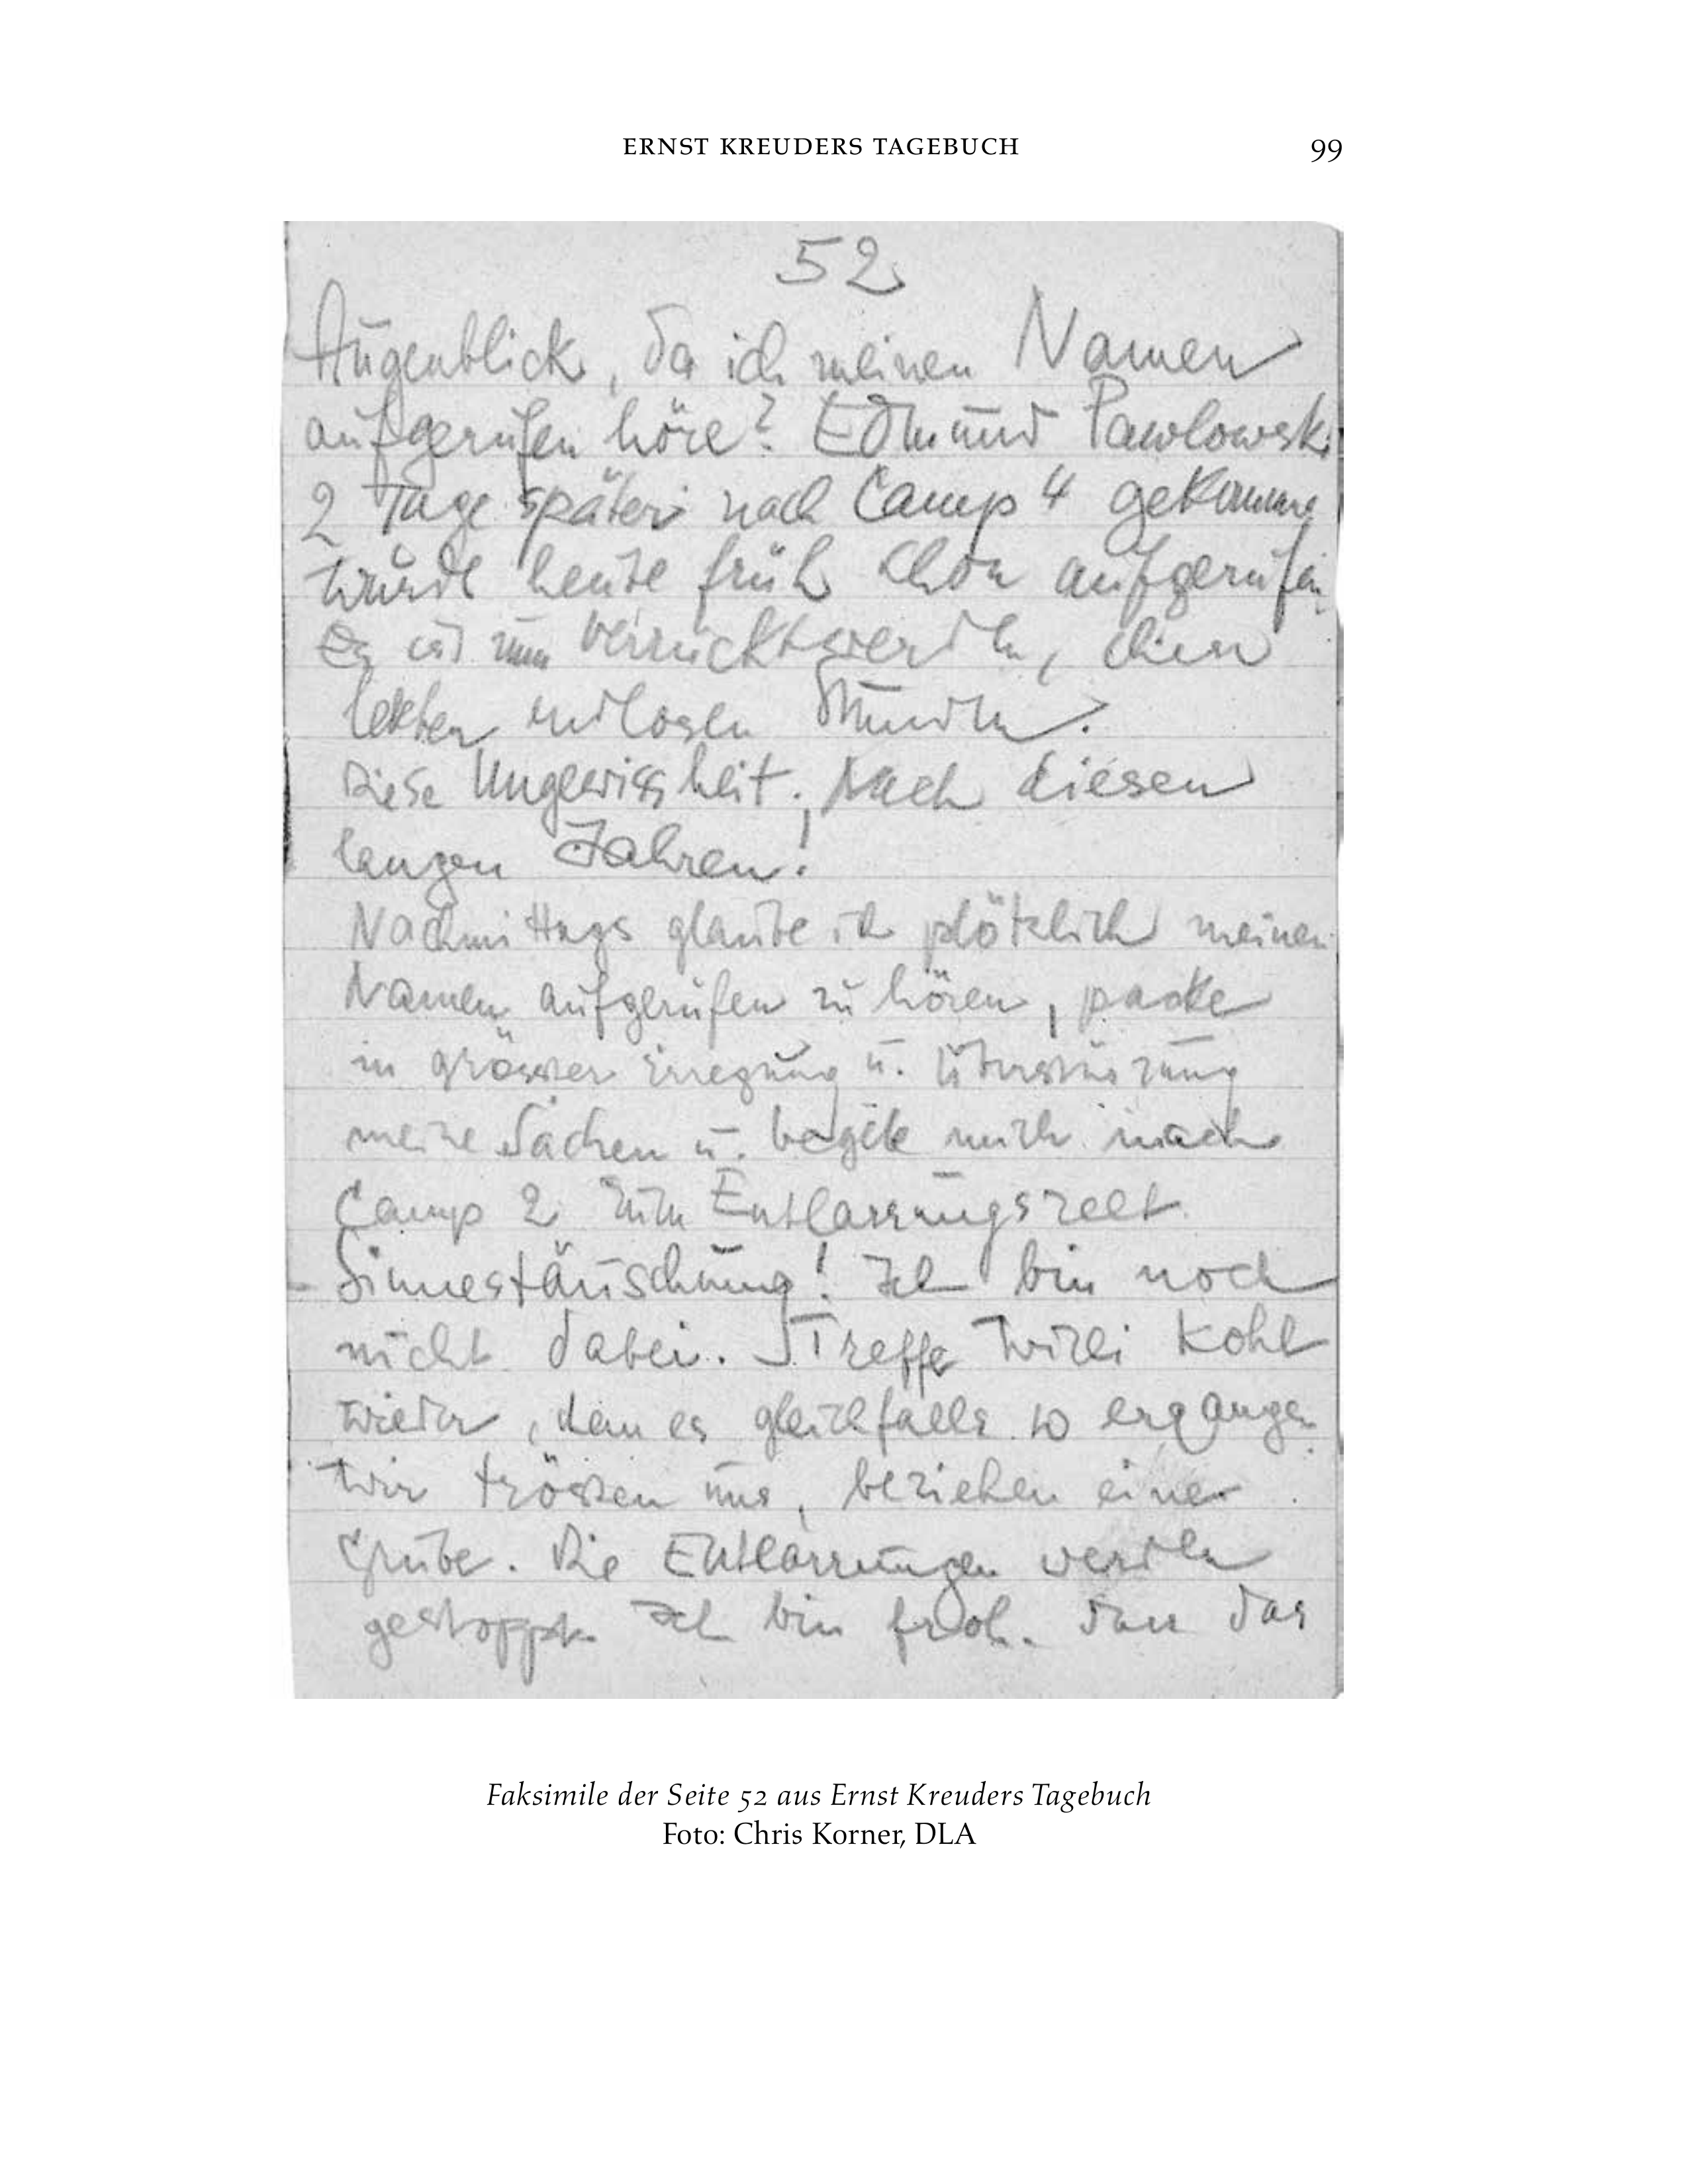 ERNST KREUDERS TAGEBUCH 99
52
Augenblick, da ich meinen Namen
aufgerufen höre? Edmund Pawlowski
2 Tage später nach Camp 4 gekommen
wurde heute früh schon aufgerufen
Es ist zum verrücktwerden, diese
letzten endlosen Stunden.
Diese Ungewissheit. Nach diesen
langen Jahren!
Nachmittags glaube ich plötzlich meinen
Namen aufgerufen zu hören, packe
in grösster Erregung u. Überstürzung
meine Sachen u. begebe mich nach
Camp 2 zum Entlassungszelt.
Sinnestäuschung! Ich bin noch
nicht dabei. Treffe Willi Kohl
wieder, dem es gleichfalls so ergangen.
Wir trösten uns, beziehen eine
Grube. Die Entlassungen werden
gestoppt. Ich bin froh. das
Faksimile der Seite 52 aus Ernst Kreuders Tagebuch
Foto: Chris Korner, DLA